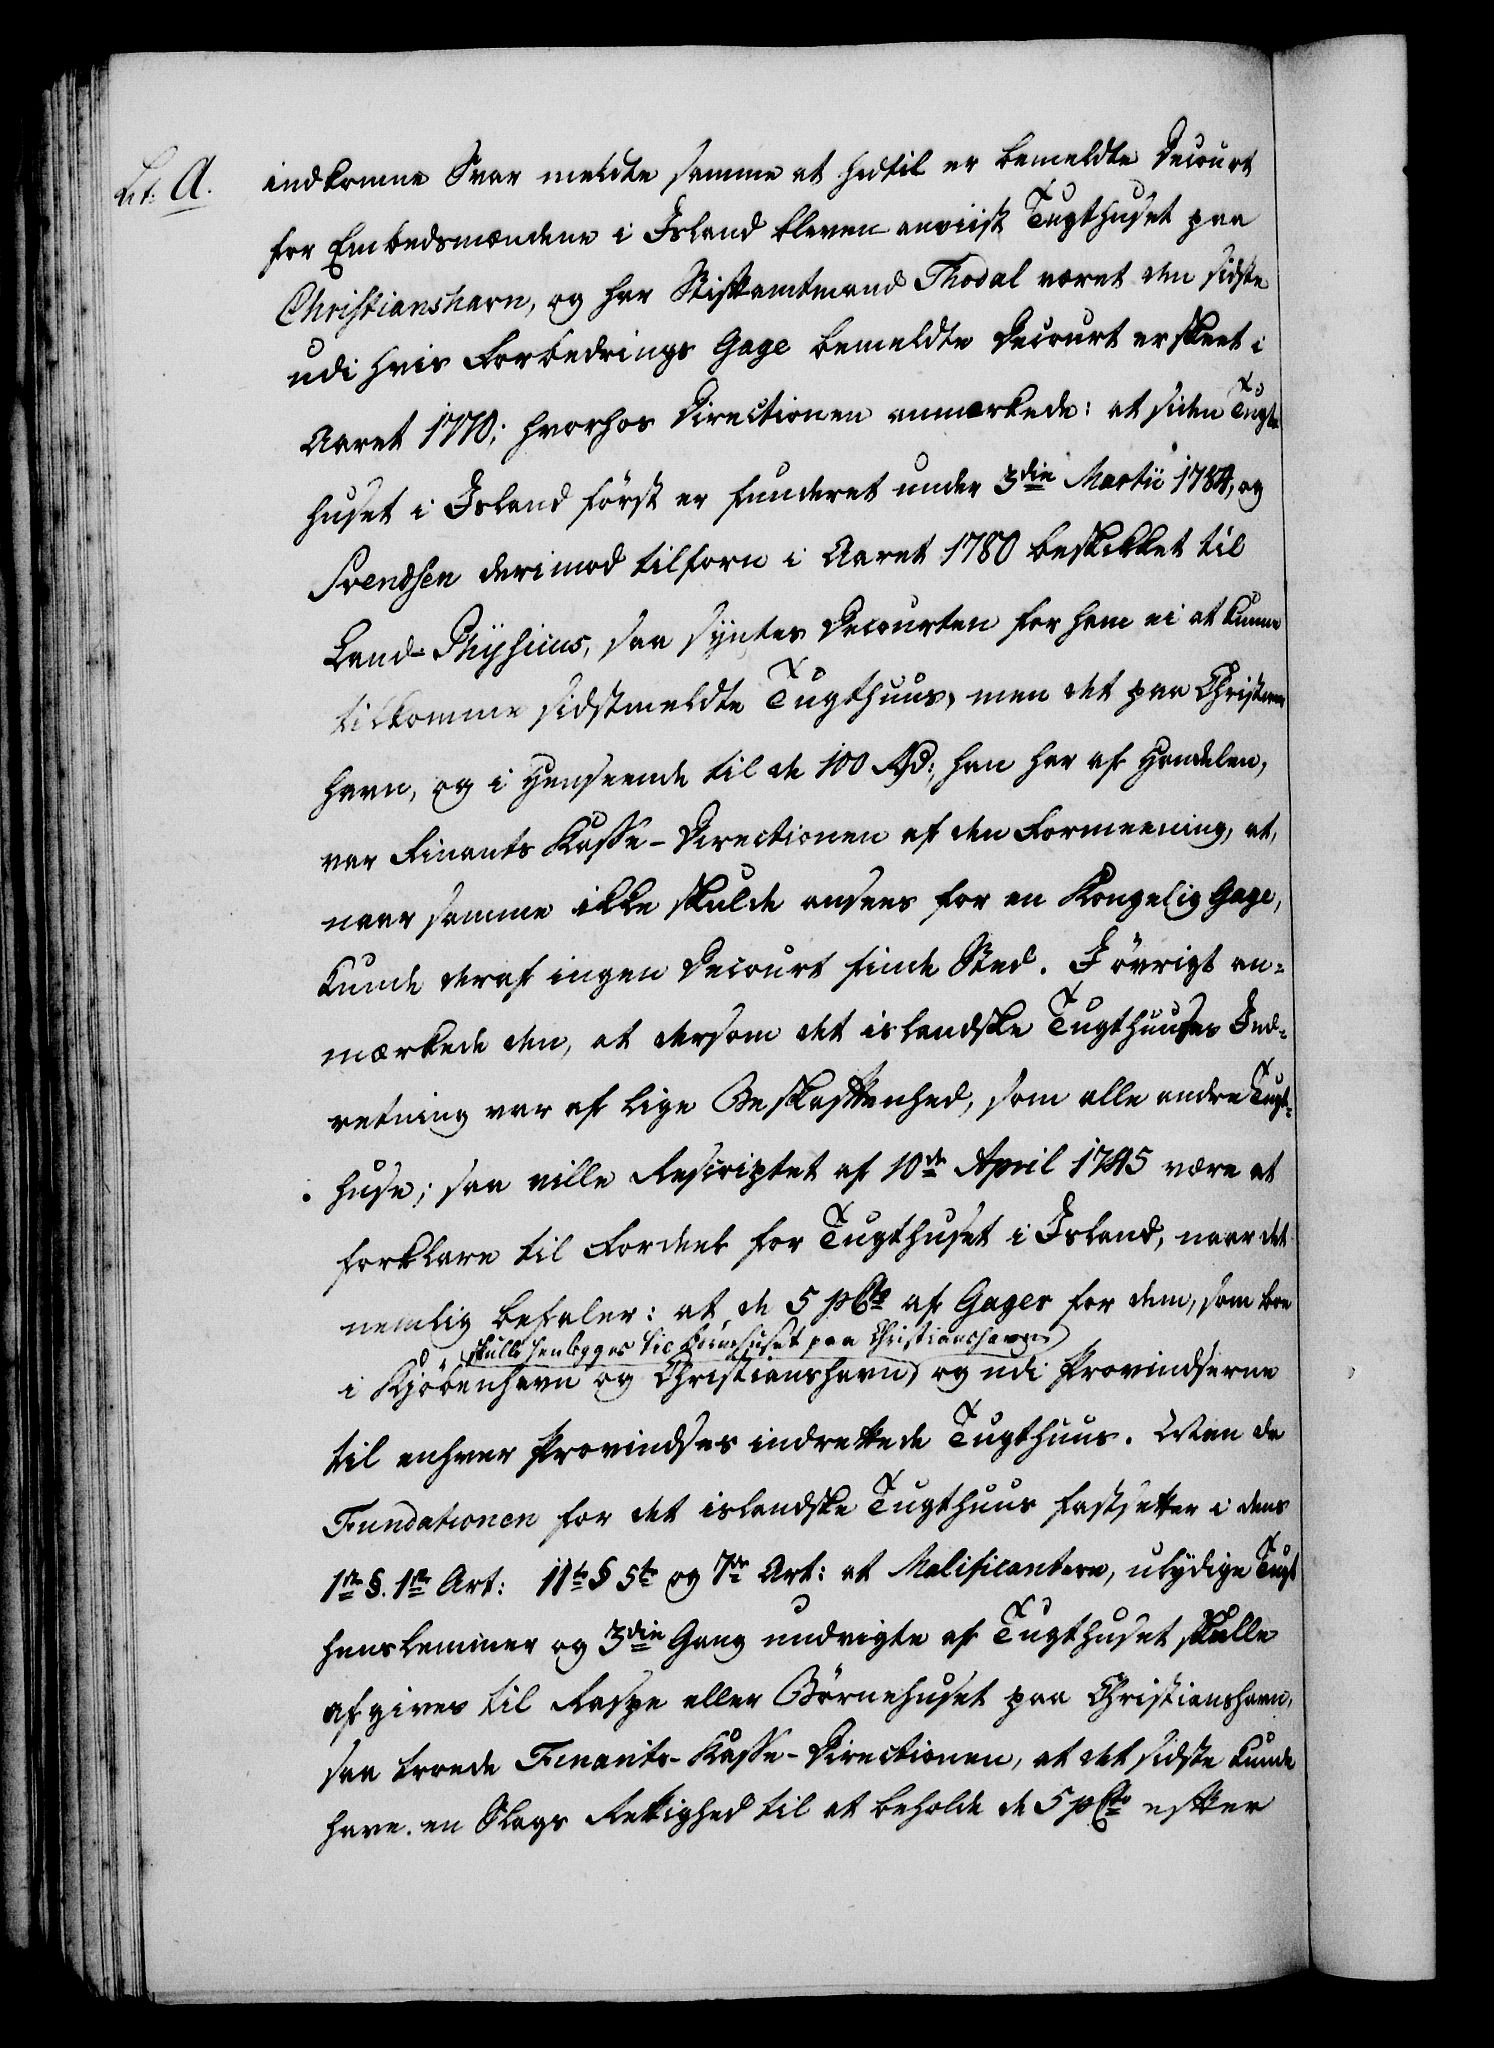 Lit: A.
indkomne Svar meldte samme at hidtil er bemeldte Decourt
for Embedsmændene i Island bleven anviist Tugthuset paa
Christianshavn, og har Stiftamtmand Thodal været den sidste
udi hvis Forbedrings Gage bemeldte Decourt er skeet i
Aaret 1770; hvorhos Directionen anmærkede: at siden Tugt
huset i Island først er funderet under 3die Martii 1784, og
Svendsen derimod tilforn i Aaret 1780 beskikket til
Land-Physicus, saa syntes Decourten for ham ei at kunne
tilkomme sidstmeldte Tugthuus, men det paa Christians
havn, og i Henseende til de 100 Rd: han har af Handelen,
var Finants Kasse-Directionen af den Formeening, at,
naar samme ikke skulde ansees for en Kongelig Gage,
kunde deraf ingen Decourt finde Sted. I øvrigt an-
mærkede den, at dersom det islandske Tugthuuses Ind-
retning var af lige Beskaffenhed, som alle andre Tugt-
huse; saa ville Rescriptet af 10de April 1745 være at
forklare til Fordeel for Tugthuset i Island, naar det
nemlig befaler: at de 5 pCto af Gager for dem, som boe
skulle henlegges til Børnehuset paa Christianshavn
i Kjøbenhavn og Christianshavn, og udi Provindserne
til enhver Provindses indrettede Tugthuus. Men da
Fundationen for det islandske Tugthuus fastsetter i dens
1ste §. 1ste Art: 11te § 5te og 7de Art: at Malificantere, ulydige Tugt
huuslemmer og 3die Gang undvigte af Tugthuset skulle
afgives til Raspe eller Børnehuset paa Christianshavn,
saa troede Finants-Kasse-Directionen, at det sidste kunde
have en Slags Rettighed til at beholde de 5 pCto efter